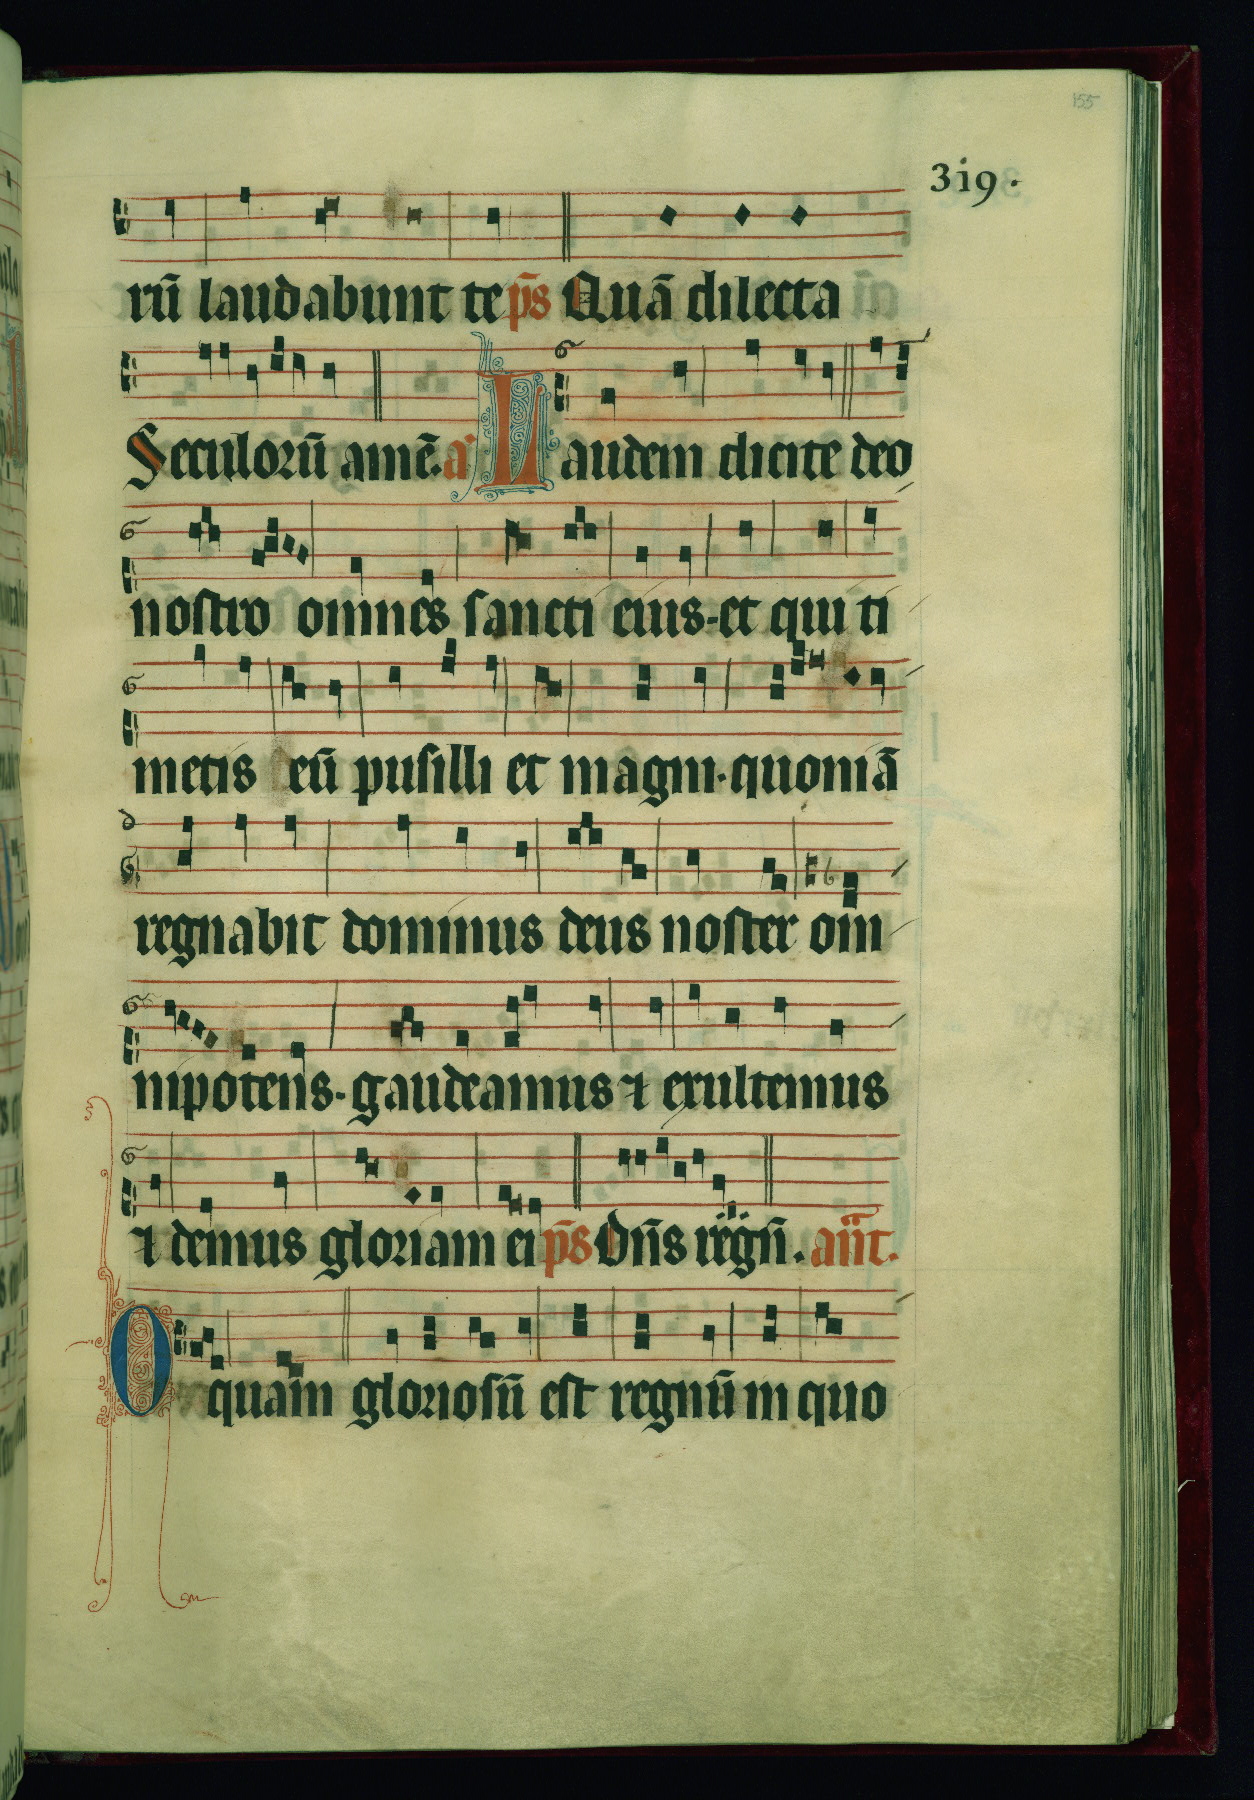 155
319.
rū laudabunt te p̄s Quā dilecta
Seculorū amē. a Laudem dicite deo
nostro omnes sancti eius. et qui ti
metis eū pusilli et magni. quoniā
regnabit dominus deus noster om
nipotens. gaudeamus ⁊ exultemus
⁊ demus gloriam ei p̄s Dn̄s regn̄. an̄t.
O quam gloriosū est regnū in quo